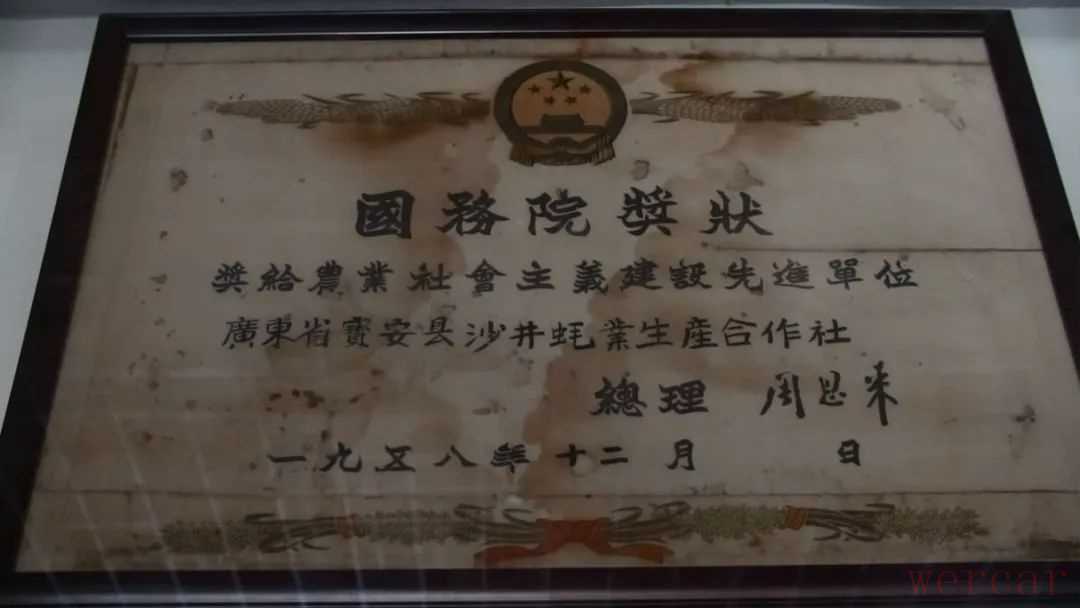 國務院獎狀
獎給農業社會主義建設先進單位
廣東省寶安县沙井蚝業生產合作社
總理 周恩来
一九五八年十二月 日
wercar